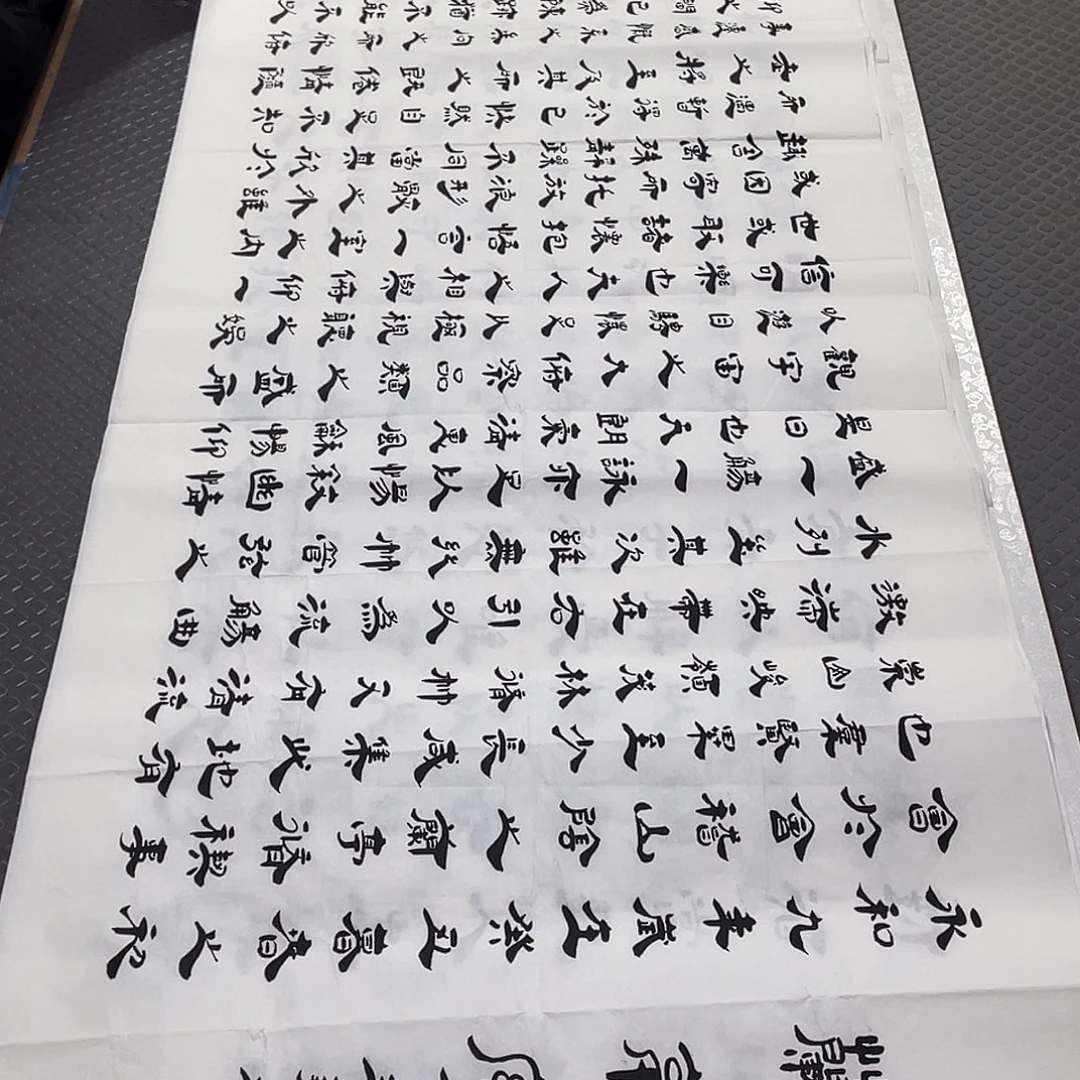 永和九年歲在癸丑暮春之初
會於會稽山陰之蘭亭脩禊事
也羣賢畢至少長咸集此地有
崇山峻領茂林脩竹又有清流
激湍映帶左右引以為流觴曲
水列坐其次雖無絲竹管弦之
盛一觴一詠亦足以暢敘幽情
是日也天朗氣清惠風和暢仰
觀宇宙之大俯察品類之盛所
以遊目騁懷足以極視聽之娛
信可樂也夫人之相與俯仰一
世或取諸懷抱悟言一室之內
或因寄所託放浪形骸之外雖
趣舍萬殊靜躁不同當其欣於
所遇暫得於己快然自足不知
老之將至及其所之既惓情隨
事遷感慨係之矣向之所欣俛
仰之間已為陳跡猶不能不以